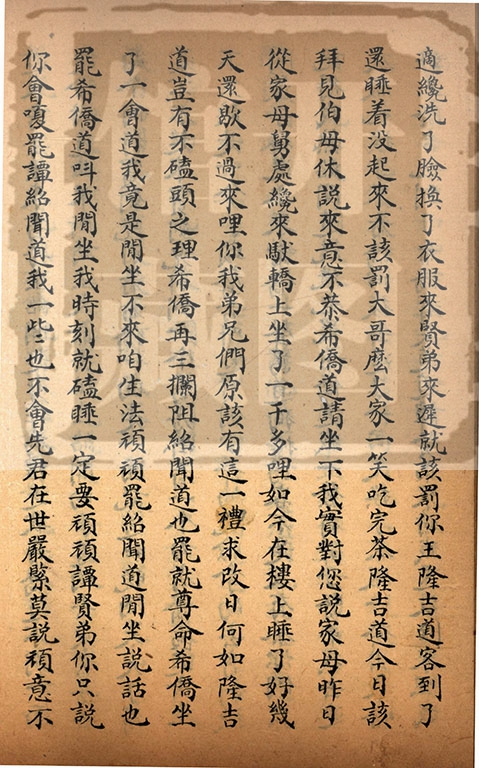 適纔洗了臉換了衣服來賢弟來遲就該罰你王隆吉道客到了
還睡着没起來不該罰大哥麽大家一笑吃完茶隆吉道今日該
拜見伯母休説來意不恭希僑道請坐下我實對您説家母昨日
從家母舅處纔來馱轎上坐了一千多哩如今在樓上睡了好幾
天還歇不過來哩你我弟兄們原該有這一禮求改日何如隆吉
道豈有不磕頭之理希僑再三攔阻紹聞道也罷就尊命希僑坐
了一會道我竟是閒坐不來咱生法頑頑罷紹聞道閒坐説話也
罷希僑道呌我閒坐我時刻就磕睡一定要頑頑譚賢弟你只説
你會嗄罷譚紹聞道我一些也不會先君在世嚴緊莫説頑意不